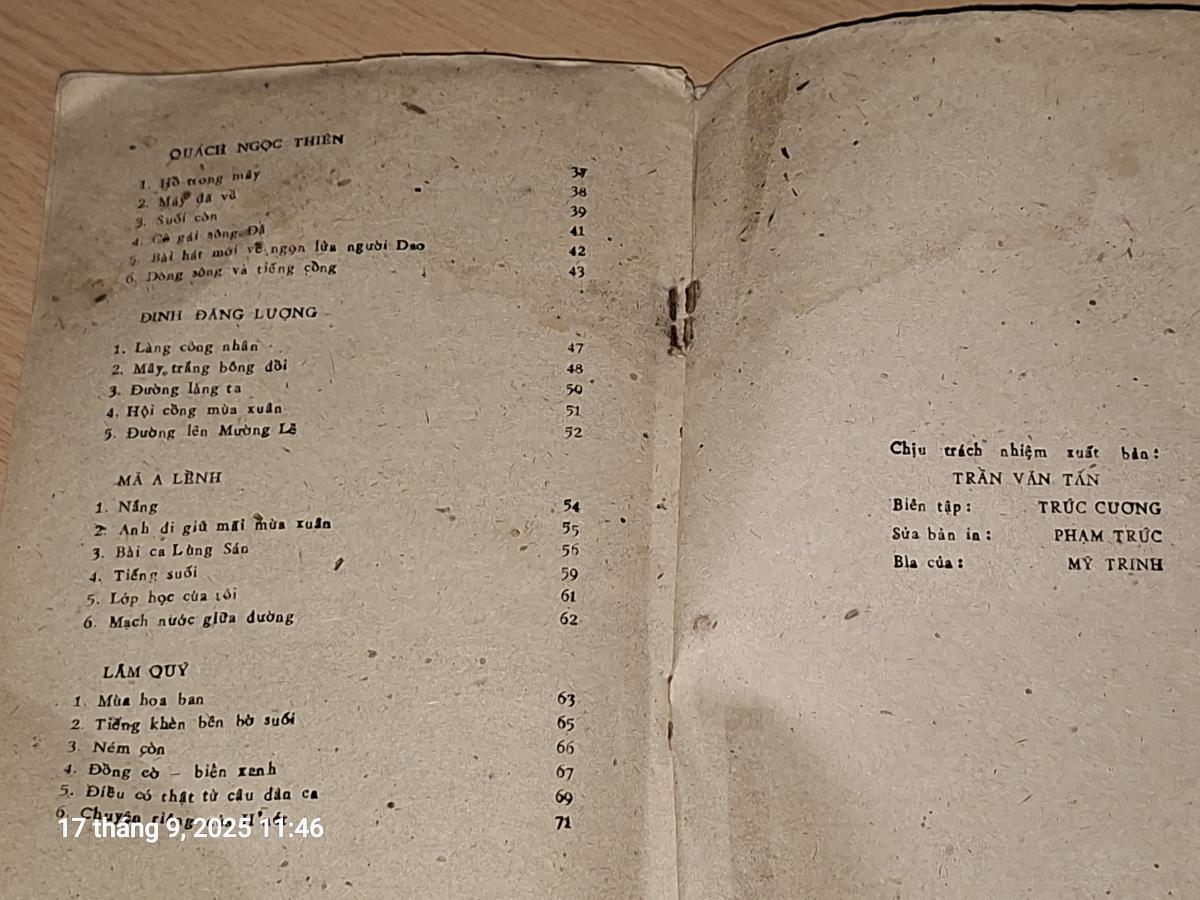 QUÁCH NGỌC THIÊN
1. Hồ trong mây 37
2. Mây đã về 38
3. Suối còn 39
4. Cô gái sông Đà 41
5. Bài hát mới về ngọn lửa người Dao 42
6. Dòng sông và tiếng cồng 43
ĐINH ĐĂNG LƯỢNG
1. Làng công nhân 47
2. Mây trắng bông đồi 48
3. Đường làng ta 50
4. Hội cồng mùa xuân 51
5. Đường lên Mường Lễ 52
MÃ A LỀNH
1. Nắng 54
2. Anh đi giữ mãi mùa xuân 55
3. Bài ca Lùng Sán 56
4. Tiếng suối 59
5. Lớp học của tôi 61
6. Mạch nước giữa đường 62
LÂM QUÝ
1. Mùa hoa ban 63
2. Tiếng khèn bên bờ suối 65
3. Ném còn 66
4. Đồng cỏ — biển xanh 67
5. Điều có thật từ câu dân ca 69
6. Chuyện riêng 71
17 tháng 9, 2025 11:46
Chịu trách nhiệm xuất bản:
TRẦN VĂN TẤN
Biên tập: TRÚC CƯƠNG
Sửa bản in: PHẠM TRÚC
Bìa của: MỸ TRINH